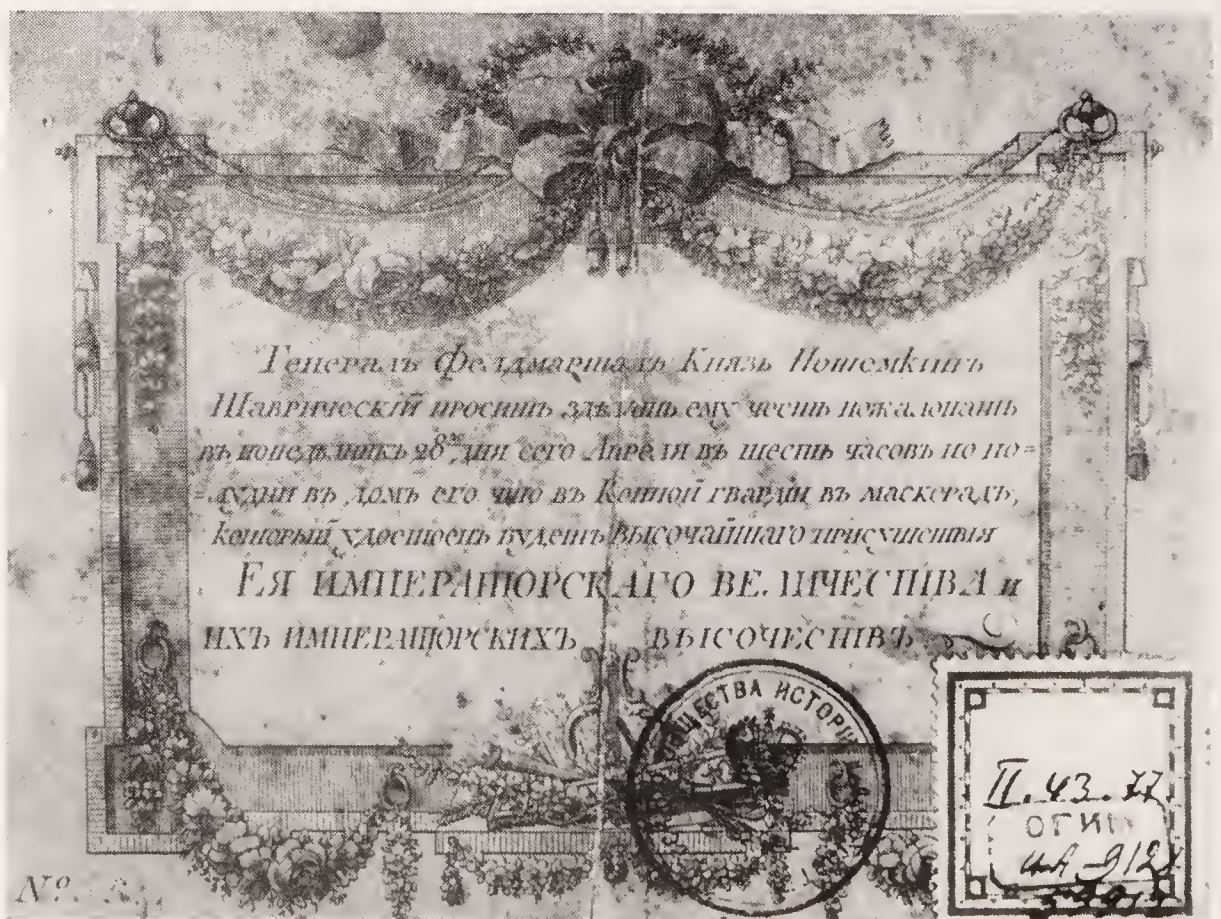 Генералъ Фелдмаршалъ Князь Потемкинъ
Таврический проситъ здѣлать ему честь пожаловать
въ понедѣлникъ 28го дня сего Апреля въ шесть часовъ по по=
=лудни въ домъ его что въ Конной гвардіи въ маскерадъ,
который удостоенъ будетъ высочайшаго присутствия
ЕЯ ИМПЕРАТОРСКАГО ВЕЛИЧЕСТВА и
ИХЪ ИМПЕРАТОРСКИХЪ ВЫСОЧЕСТВЪ
ОБЩЕСТВА ИСТОРІИ
II.43.77
ОГИМ
№